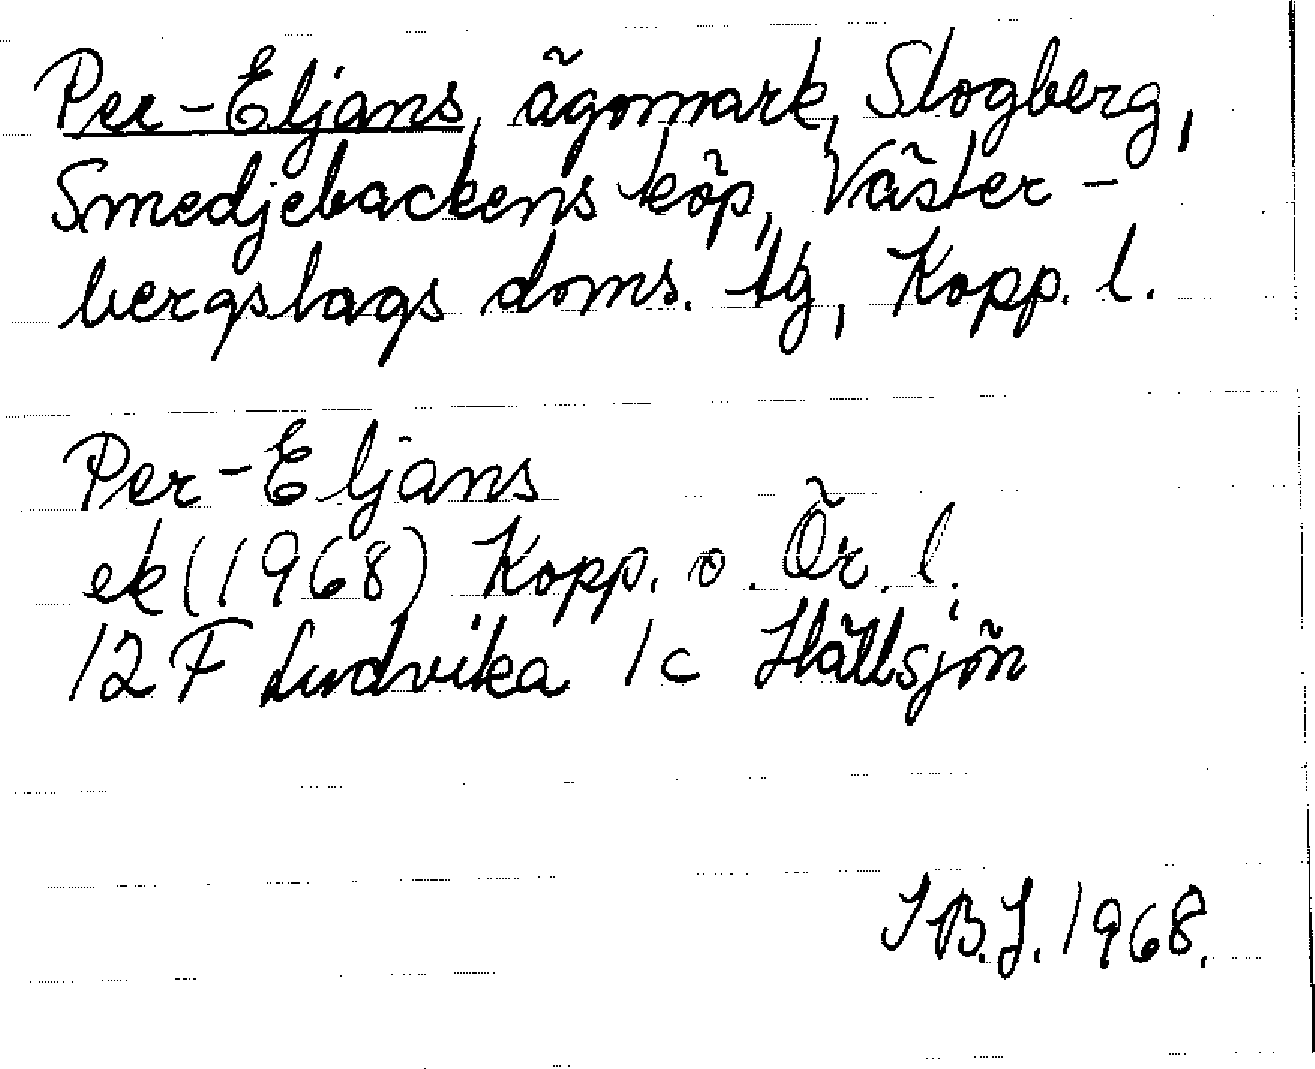 Per-Eljans, ägomark, Slogberg,
Smedjebackens köp, Väster-
bergslags doms. tg, Kopp. l.
Per-Eljans
ek (1968) Kopp. o. Ör. l.
12 F Ludvika 1c Hällsjön
I B.J. 1968.